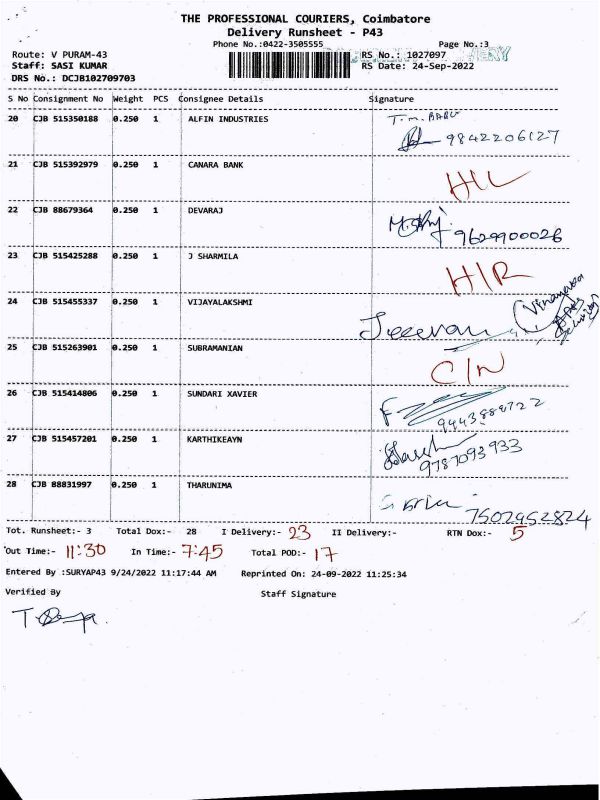 THE PROFESSIONAL COURIERS, Coimbatore
Delivery Runsheet - P43
Phone No.:0422-3505555 Page No.:3
Route: V PURAM-43 RS No.: 1027097
Staff: SASI KUMAR RS Date: 24-Sep-2022
DRS No.: DCJB102709703
S No Consignment No Weight PCS Consignee Details Signature
20 CJB 515350188 0.250 1 ALFIN INDUSTRIES T.m. BABU
9842206127
21 CJB 515392979 0.250 1 CANARA BANK
22 CJB 88679364 0.250 1 DEVARAJ
9629900026
23 CJB 515425288 0.250 1 J SHARMILA
24 CJB 515455337 0.250 1 VIJAYALAKSHMI
Jeevan
25 CJB 515263901 0.250 1 SUBRAMANIAN
C/N
26 CJB 515414806 0.250 1 SUNDARI XAVIER
9443888722
27 CJB 515457201 0.250 1 KARTHIKEAYN
9787093933
28 CJB 88831997 0.250 1 THARUNIMA
7502952824
Tot. Runsheet:- 3 Total Dox:- 28 I Delivery:- 23 II Delivery:- RTN Dox:- 5
Out Time:- 11:30 In Time:- 7:45 Total POD:- 17
Entered By :SURYAP43 9/24/2022 11:17:44 AM Reprinted On: 24-09-2022 11:25:34
Verified By Staff Signature